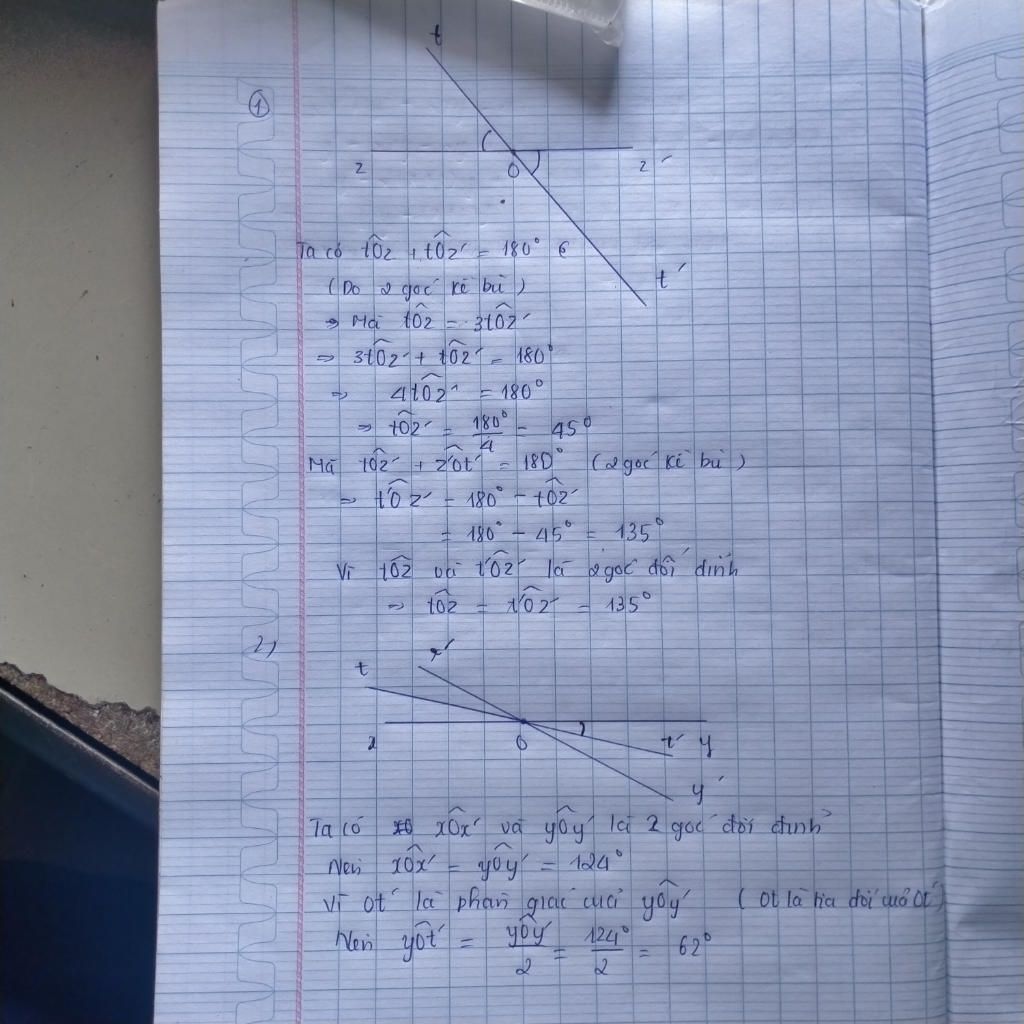 t
①
z O z'
t'
Ta có tÔz + tÔz' = 180°
(Do 2 góc kề bù)
⇒ Mà tÔz = 3tÔz'
⇒ 3tÔz' + tÔz' = 180°
⇒ 4tÔz' = 180°
⇒ tÔz' = 180°/4 = 45°
Mà tÔz' + z'Ôt' = 180° (2 góc kề bù)
⇒ t'Ôz' = 180° - tÔz'
= 180° - 45° = 135°
Vì tÔz và t'Ôz' là 2 góc đối đỉnh
⇒ tÔz = t'Ôz' = 135°
2)
t x'
x O t' y
y'
Ta có xÔx' và yÔy' là 2 góc đối đỉnh
Nên xÔx' = yÔy' = 124°
Vì Ot' là phân giác của yÔy' (Ot là tia đối của Ot')
Nên yÔt' = yÔy'/2 = 124°/2 = 62°